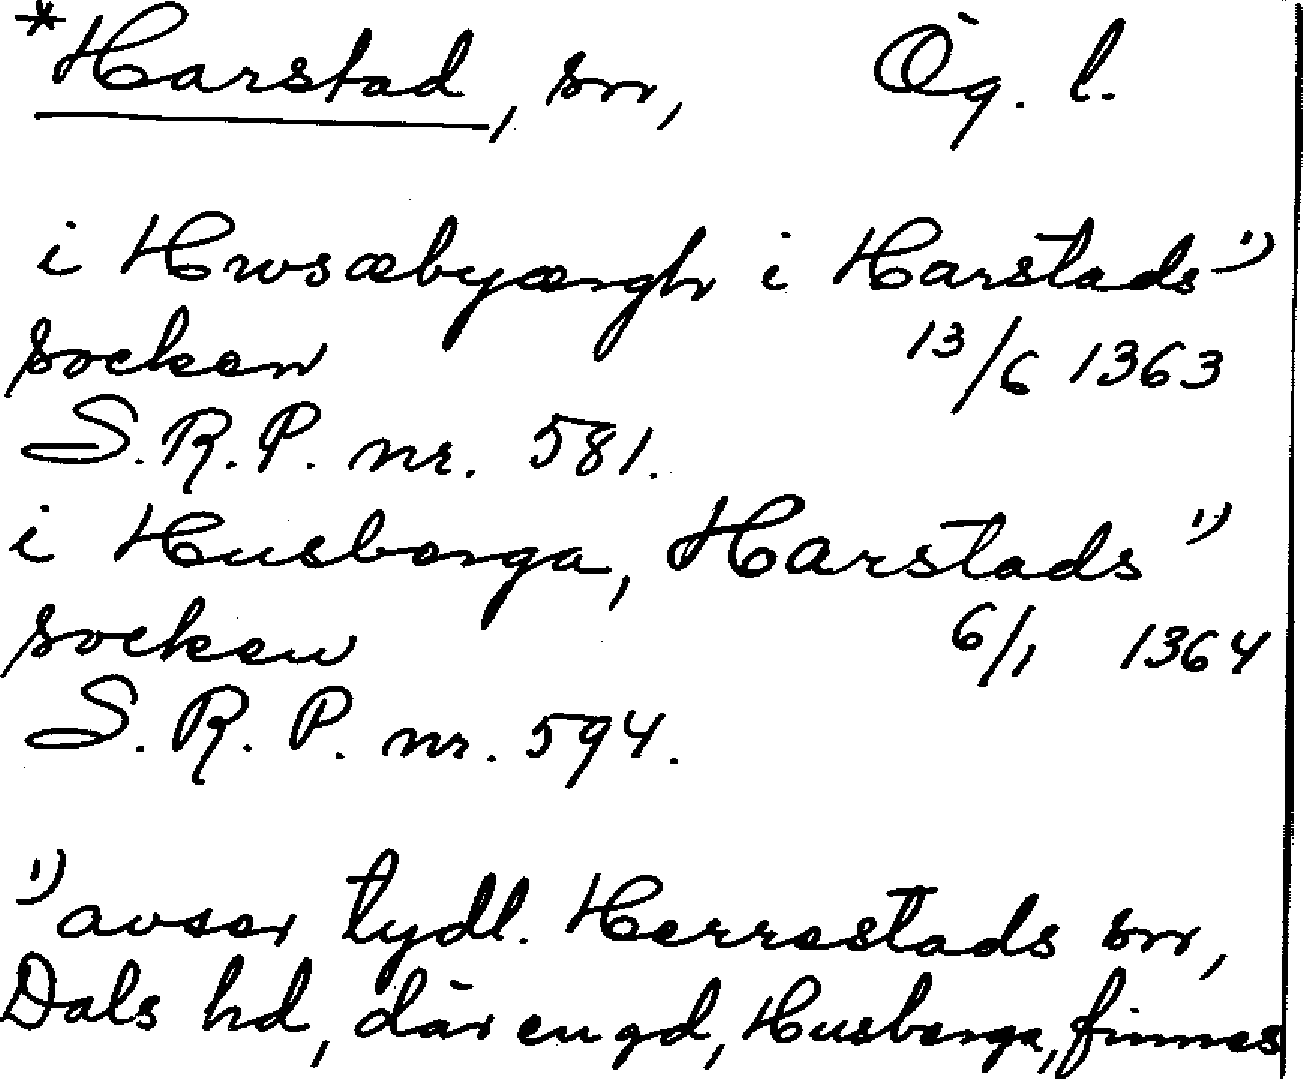 *Harstad, sn, Ög. l.
i Hwsæbyærgh i Harstads¹⁾
socken 13/6 1363
S.R.P. nr. 581.
i Husberga, Harstads¹⁾
socken 6/1 1364
S.R.P. nr. 594.
¹⁾avser tydl. Herrestads sn,
Dals hd, där en gd, Husberga, finnes